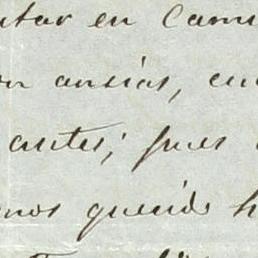 ntar en Cam
on ansias, en
antes; pues
nos querido h